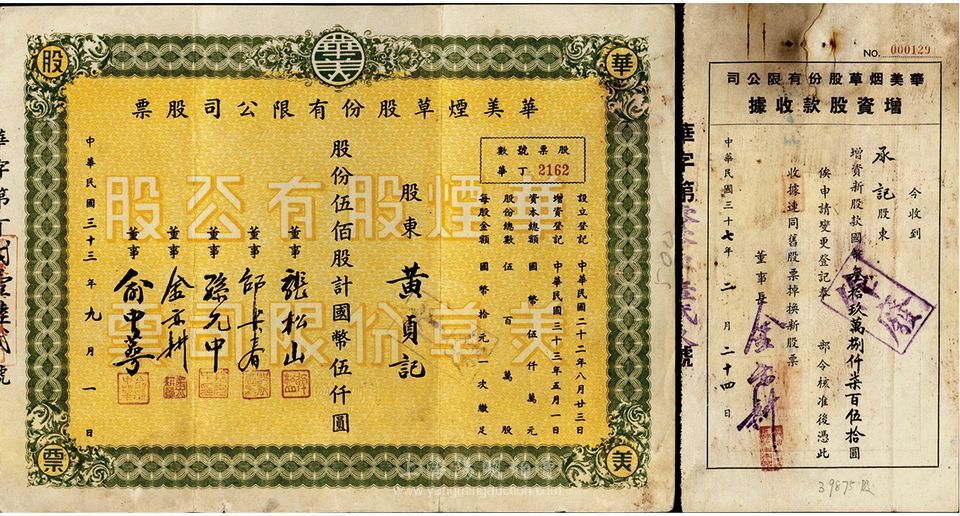 華美
股
華
票
美
華美煙草股份有限公司股票
股票號數
華丁 2162
設立登記 中華民國二十二年八月廿三日
增資登記 中華民國三十三年五月一日
資本總額 國幣伍仟萬元
股份總數 伍百萬股
每股金額 國幣拾元一次繳足
股東 黃貞記
股份伍佰股計國幣伍仟圓
董事 張松山
董事
董事 孫元中
董事
董事 俞中蕚
中華民國三十三年九月一日
華煙股有公股
美草份限司票
華字第丁
號
www.yangmingauction.com
NO. 000129
華美烟草股份有限公司
增資股款收據
今收到
承記股東
增資新股款國幣叁拾玖萬捌仟柒百伍拾圓
俟申請變更登記奉 部令核准後憑此
收據連同舊股票掉換新股票
董事長
中華民國三十七年二月二十四日
華字第
號
500
39875股